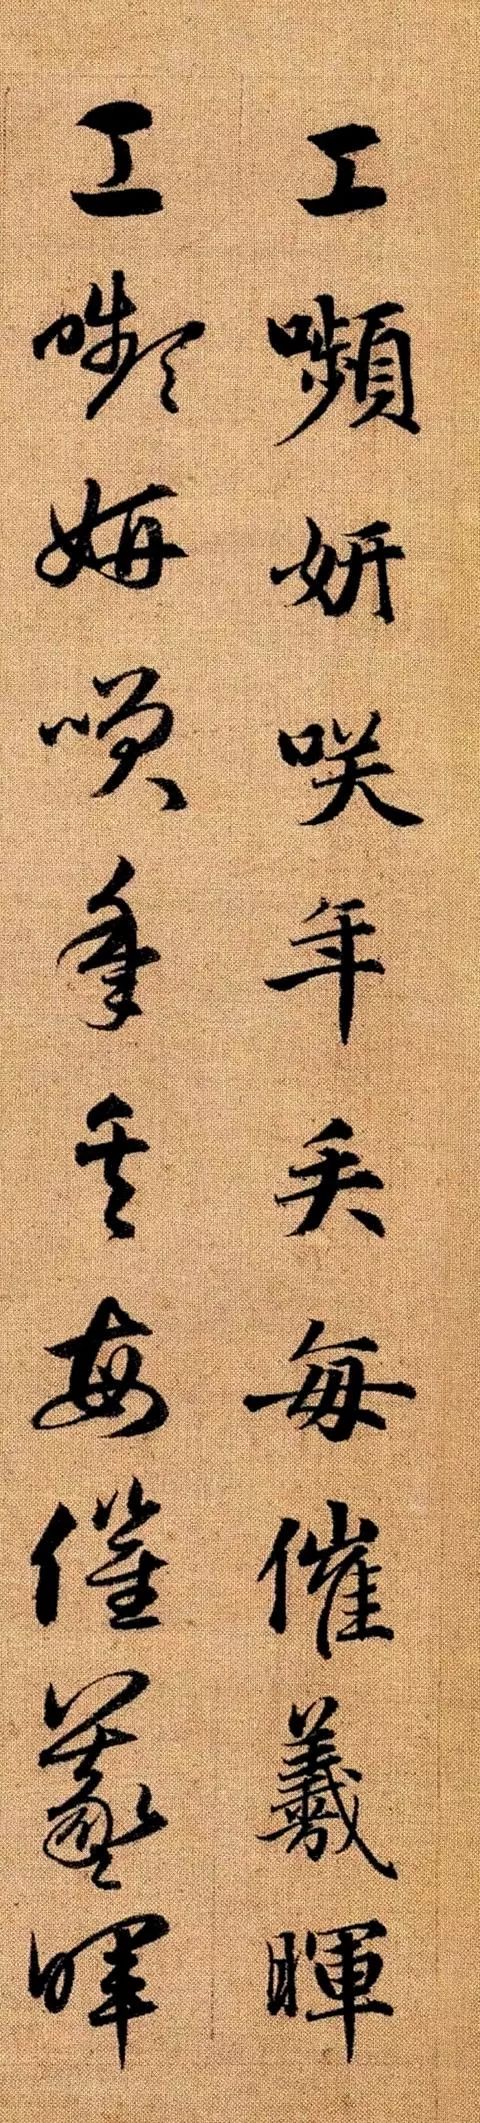 工嚬妍咲年矢每催羲暉
工嚬妍咲年矢每催羲暉